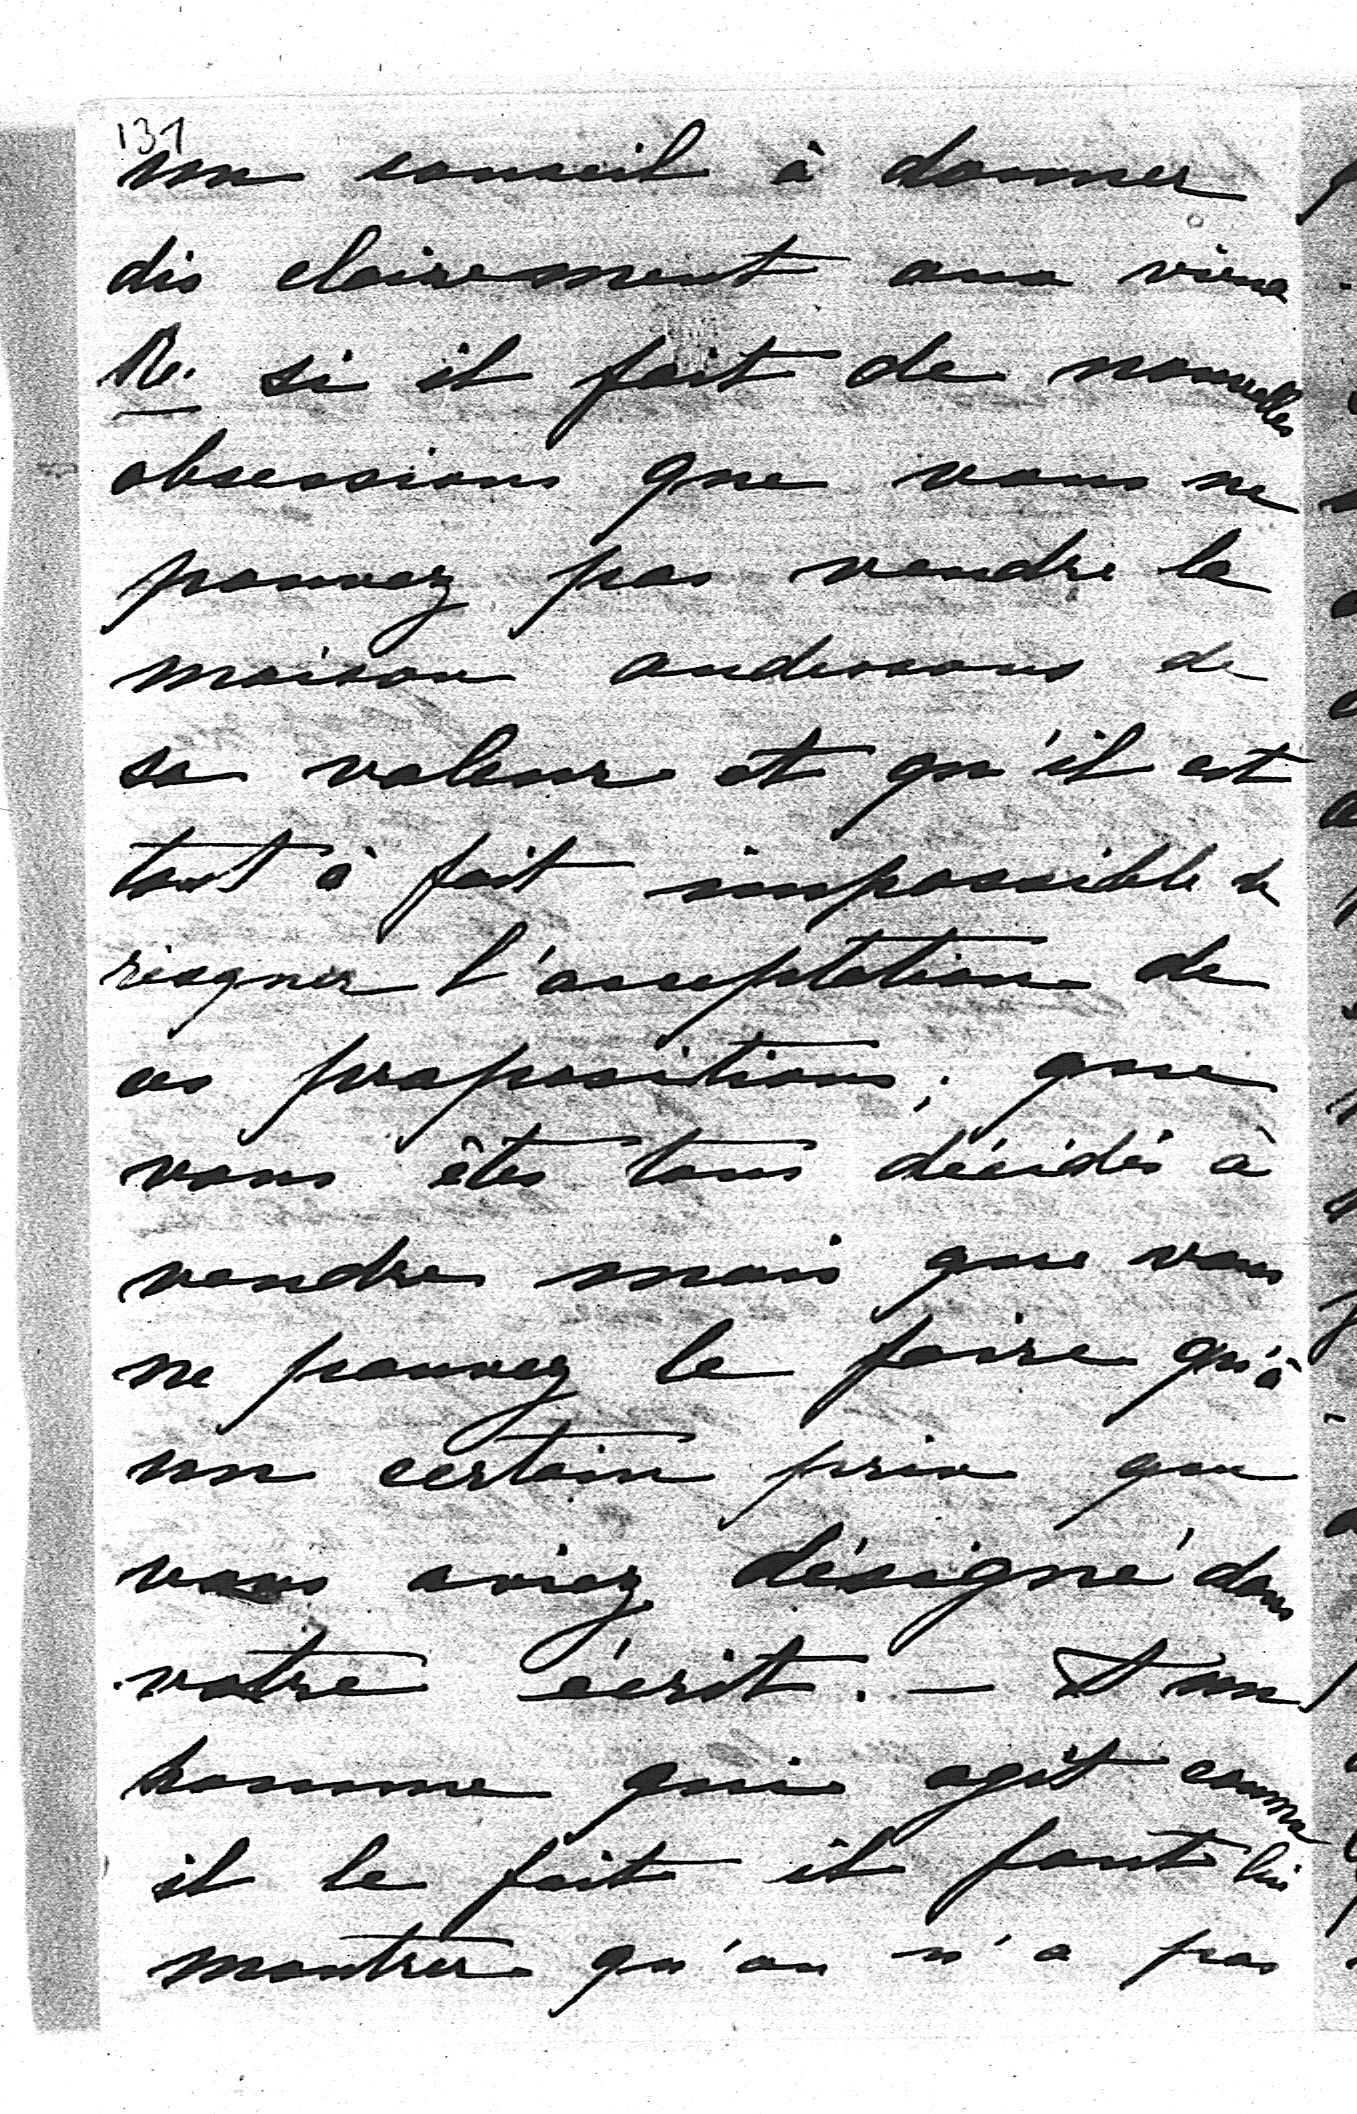 131
un conseil à donner
dis clairement aux vieux
Re. si il fait de nouvelles
obsessions que vous ne
pouvez pas vendre la
maison audessous de
sa valeur et qu'il est
tout à fait impossible de
risquer l'acceptation de
ces propositions; que
vous êtes tous décidés à
vendre mais que vous
ne pouvez le faire qu'à
un certain prix que
vous aviez désigné dans
votre écrit. — A un
homme qui agit comme
il le fait il faut lui
montrer qu'on n'a pas